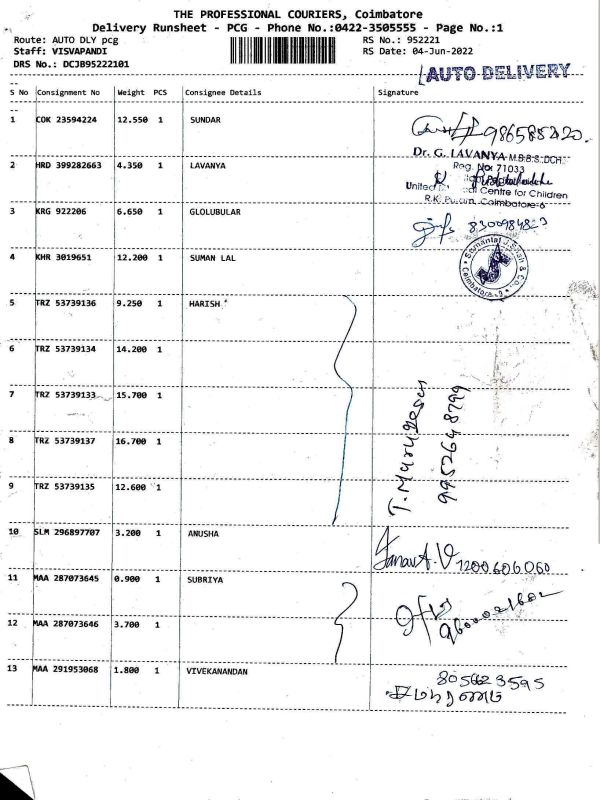 THE PROFESSIONAL COURIERS, Coimbatore
Delivery Runsheet - PCG - Phone No.:0422-3505555 - Page No.:1
Route: AUTO DLY pcg RS No.: 952221
Staff: VISVAPANDI RS Date: 04-Jun-2022
DRS No.: DCJB95222101
AUTO DELIVERY
S No Consignment No Weight PCS Consignee Details Signature
1 COK 23594224 12.550 1 SUNDAR
Dr. G. LAVANYA M.B.B.S.,DCH.
2 HRD 399282663 4.350 1 LAVANYA Reg. No: 71033
Centre for Children
Coimbatore-6
3 KRG 922206 6.650 1 GLOLUBULAR
4 KHR 3019651 12.200 1 SUMAN LAL
Coimbatore
5 TRZ 53739136 9.250 1 HARISH
6 TRZ 53739134 14.200 1
7 TRZ 53739133 15.700 1
8 TRZ 53739137 16.700 1
9 TRZ 53739135 12.600 1
T. Murugesan
9952648799
10 SLM 296897707 3.200 1 ANUSHA
7200606060
11 MAA 287073645 0.900 1 SUBRIYA
12 MAA 287073646 3.700 1
13 MAA 291953068 1.800 1 VIVEKANANDAN
805623595